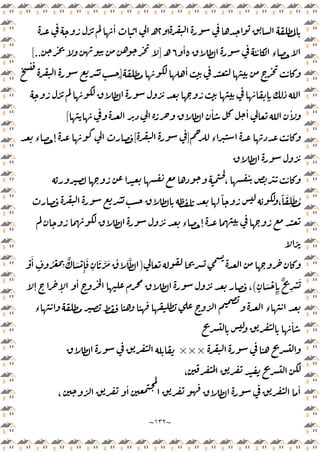 بالمطلقة السابق تواجدها في سورة البقرة و٢ه٢ اثبات أنها لم تزل زوجة في عدة
الاحصاء الكائنة في سورة الطلاق و١ه٦٥ لا تخرجوهن من بيوتهن ولا يخرجن..]
وكانت تخرج من بيتها لتعتد في بيت أهلها لكونها مطلقة[حسب تشريع سورة البقرة فنسخ
الله ذلك بإبقائها في بيتها بيت زوجها بعد نزول سورة الطلاق لكونها لم تزل زوجة
ولأن الله تعالي أجل كل شأن الطلاق وحرزه الي دبر العدة وفي نهايتها]
وكانت عدتها عدة استبراء للرحم[في سورة البقرة] فصارت الي كونها عدة إحصاء بعد
نزول سورة الطلاق
وكانت تتربص بنفسها، محتمية وجودها مع نفسها بعيدا عن زوجها لصيرورته
مُطلِقاً،ولكونه ليس زوجاً لها بعد تلفظه بالطلاق حسب تشريع سورة البقرة فصارت
تعتد مع زوجها في بيتهما عدة إحصاء بعد نزول سورة الطلاق لكونهما زوجان لم
يزالا
وكان خروجها من العدة يسمي تسريحا لقوله تعالي( الطَّلَاقُ مَرَّتَانِ فَإِمْسَاكٌ بِمَعْرُوفٍ أَوْ
تَسْرِيحٌ بِإِحْسَانٍ)، فصار بعد نزول سورة الطلاق محرم عليها الخروجُ أو الإخراج إلا
بعد انتهاء العدة و تصميم الزوج علي تطليقها هنا وهنا فقط تصير مطلقة وانتهاء
شأنها بالتفريق وليس بالتسريح
والتسريح هنا في سورة البقرة ××× يقابله التفريق في سورة الطلاق
لكن التسريح يفيد تفريق المفترقين،
أما التفريق في سورة الطلاق فهو تفريق المجتمعين أو تفريق الزوجين ،
~١٣٢~